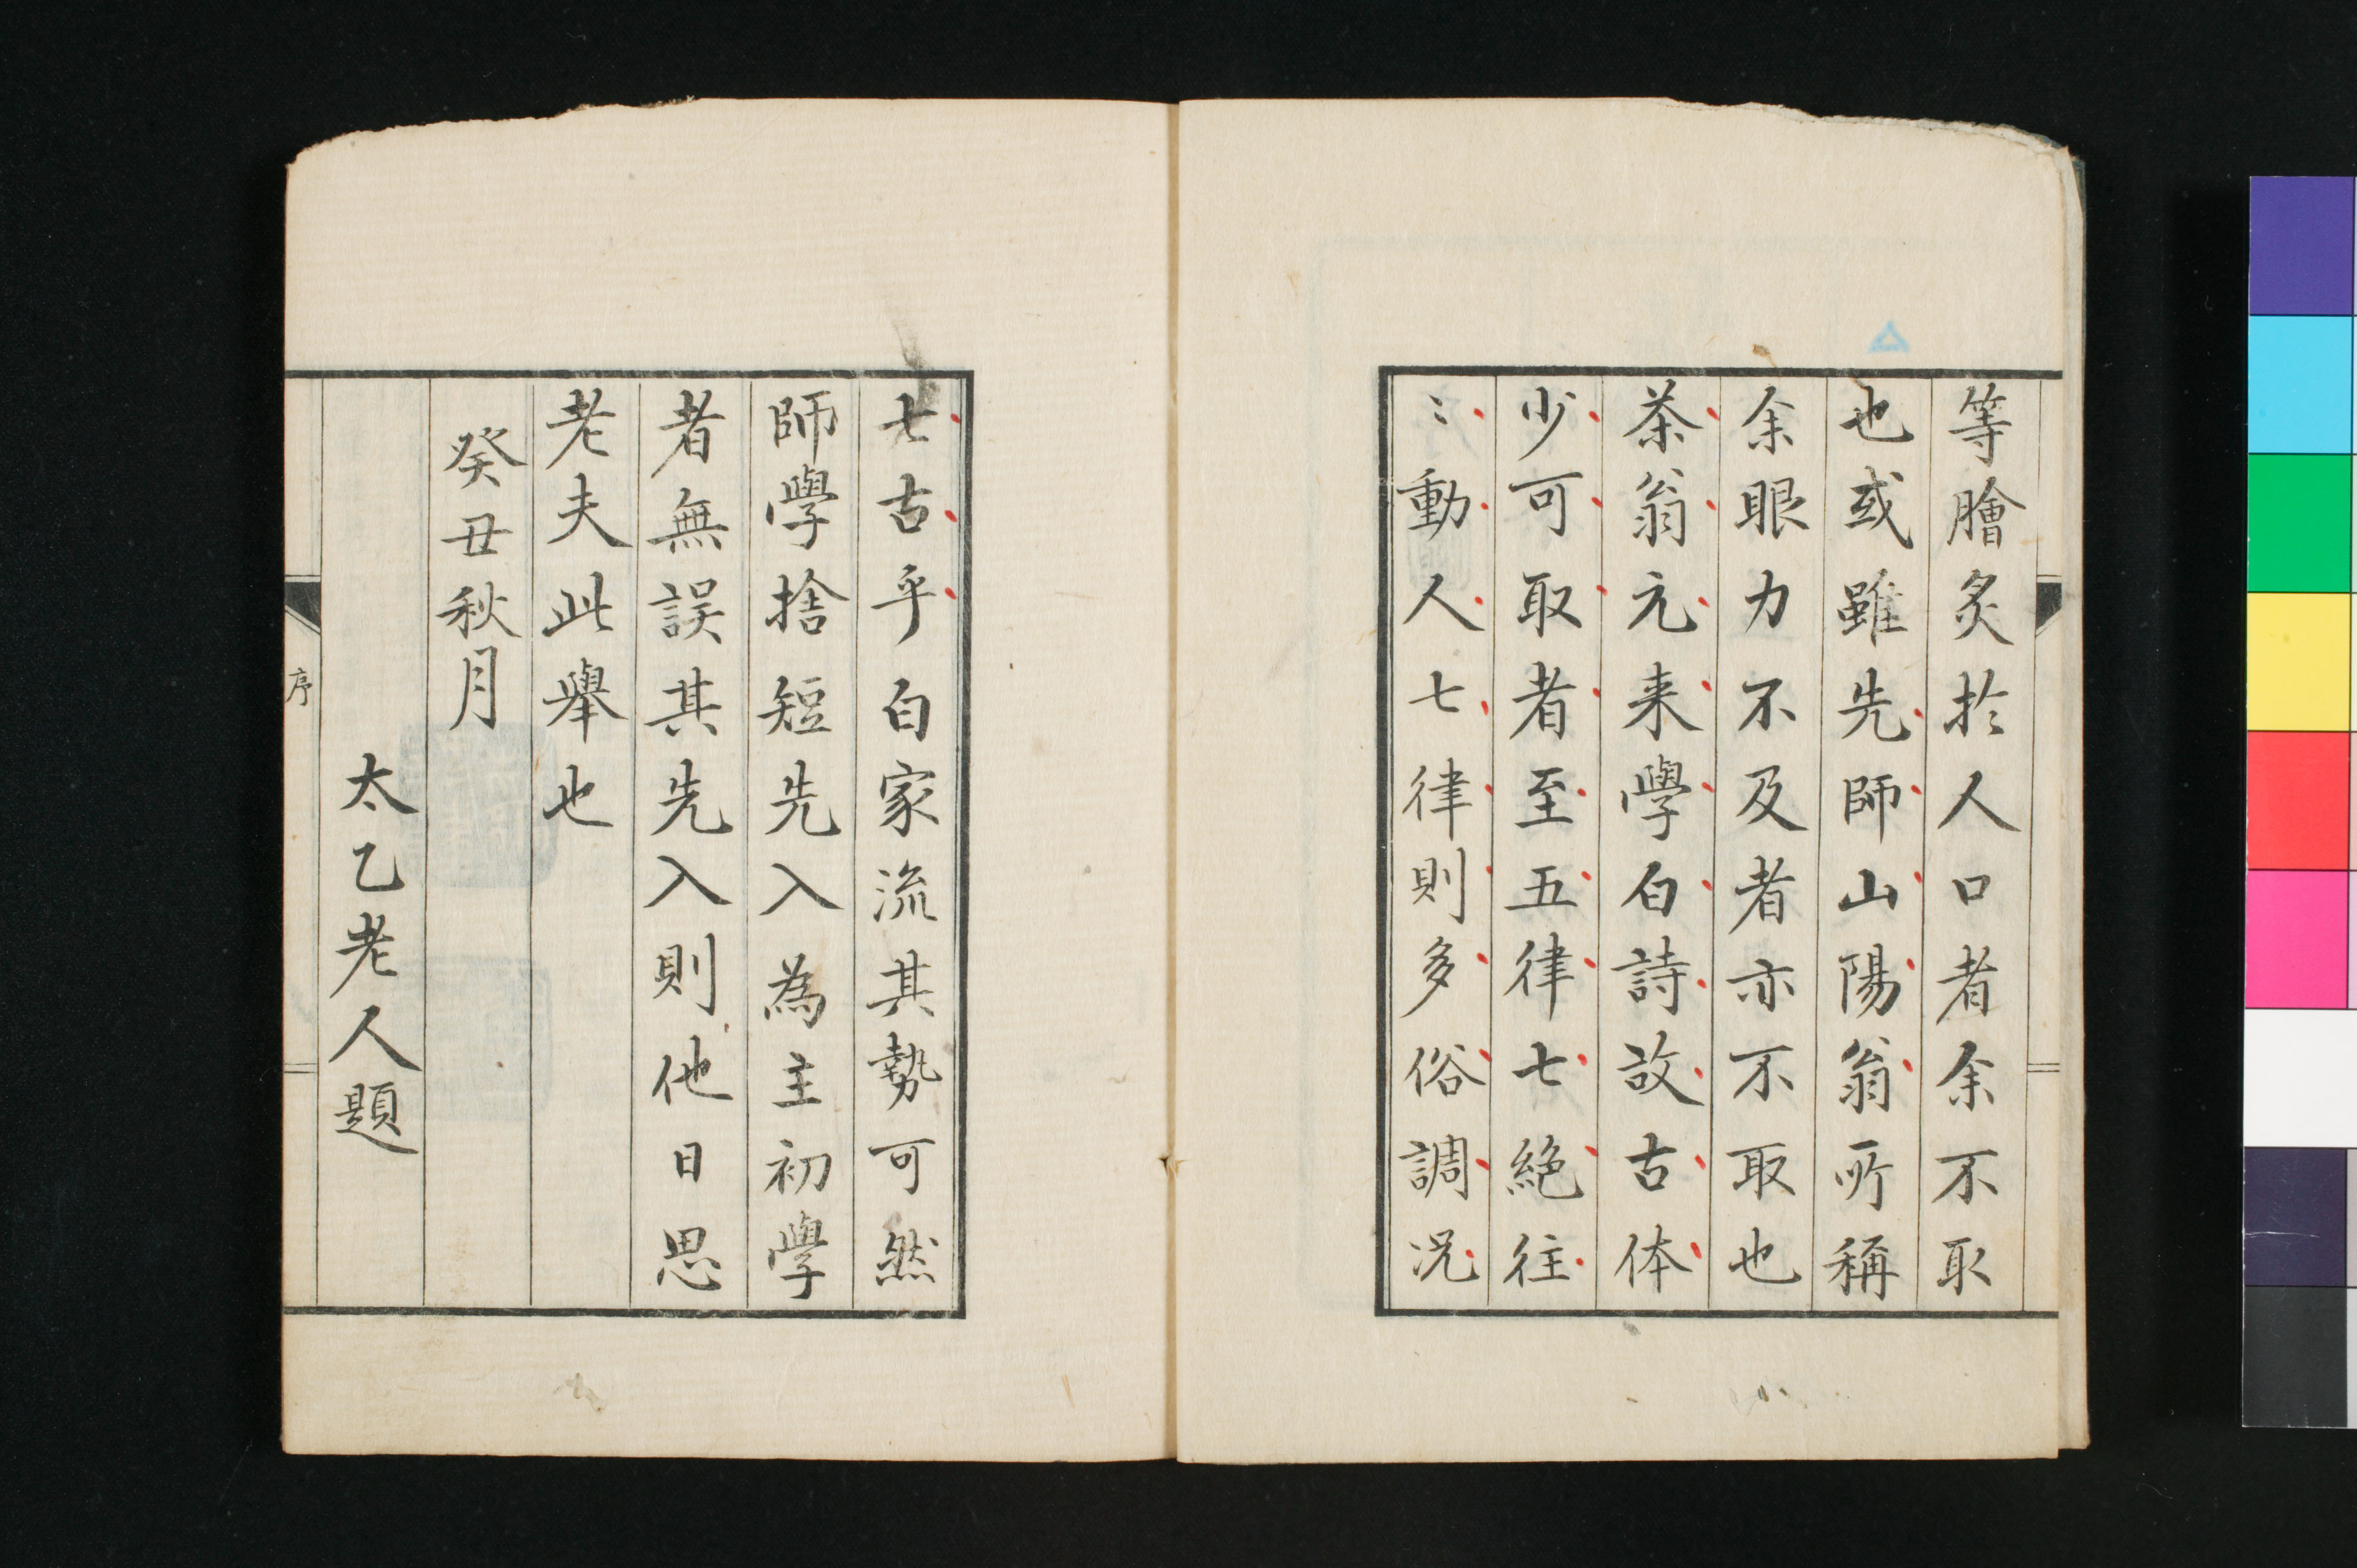 等膾炙於人口者余不取
也或雖先師山陽翁所稱
余眼力不及者亦不取也
茶翁元来學白詩故古体
少可取者至五律七絶往
〻動人七律則多俗調况
七古乎白家流其勢可然
師學捨短先入為主初學
者無誤其先入則他日思
老夫此舉也
癸丑秋月
太乙老人題
序